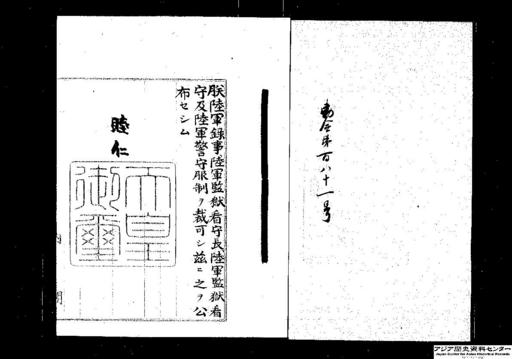 勅令第百八十一号
朕陸軍録事陸軍監獄看守長陸軍監獄看
守及陸軍警守服制ヲ裁可シ茲ニ之ヲ公
布セシム
睦仁
天皇
御璽
アジア歴史資料センター
Japan Center for Asian Historical Records